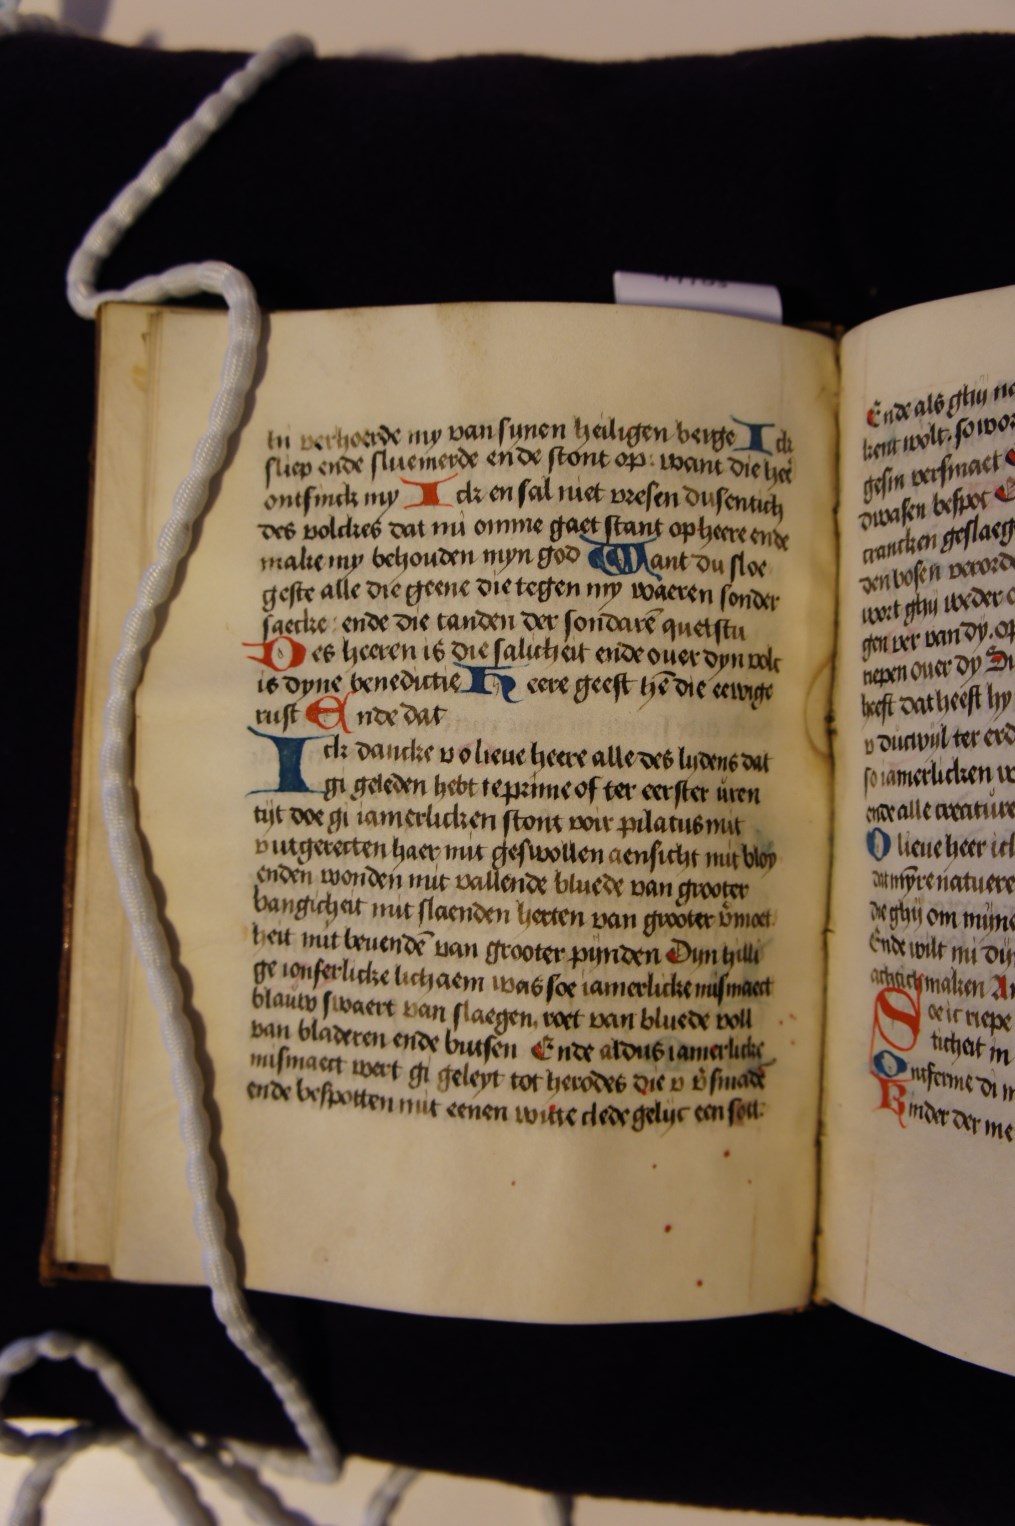 hi verhoerde my van sijnen heiligen berge Ick
sliep ende sluemerde ende stont op: want die hēe
ontfinck my Ick en sal niet vresen dusentich
des volckes dat mi omme gaet stant op heere ende
make my behouden myn god Want du sloe
geste alle die geene die tegen my waeren sonder
saecke: ende die tanden der sondarē quetstu
Des heeren is die salicheit ende over dyn volc
is dyne benedictie Heere geeft hē die eewige
rust Ende dat
Ick dancke v o lieue heere alle des lydens dat
gi geleden hebt te prime of ter eerster uren
tijt doe gi iamerlicken stont voir pilatus mit
vutgerecten haer mit geswollen aensicht mit bloy
enden wonden mit vallende bluede van grooter
bangicheit mit slaenden herten van grooter v̄moet
heit mit beuendē van grooter pijnden Dyn hilli
ge ionferlicke lichaem was soe iamerlicke mismaect
blauw swaert van slaegen, roet van bluede voll
van bladeren ende builsen Ende aldus iamerlicke
mismaect wert gi geleyt tot herodes die v v̄smade
ende bespotten mit eenen witte clede gelijc een sott.
Ende als ghij
kent wolt. so
gesin versmaet
dwasen bespot
crancken geslaeg
den bosen verord
wort ghij weder
gen ver van dy. op
riepen over dy
heeft dat heeft hy
v ducwijl ter
so iamerlicken
ende alle creature
O lieue heer ick
dat myne natuere
die ghij om mijne
Ende wilt mi
maken
Soe ic riepe
ticheit in
Ontferme di
Kinder der me